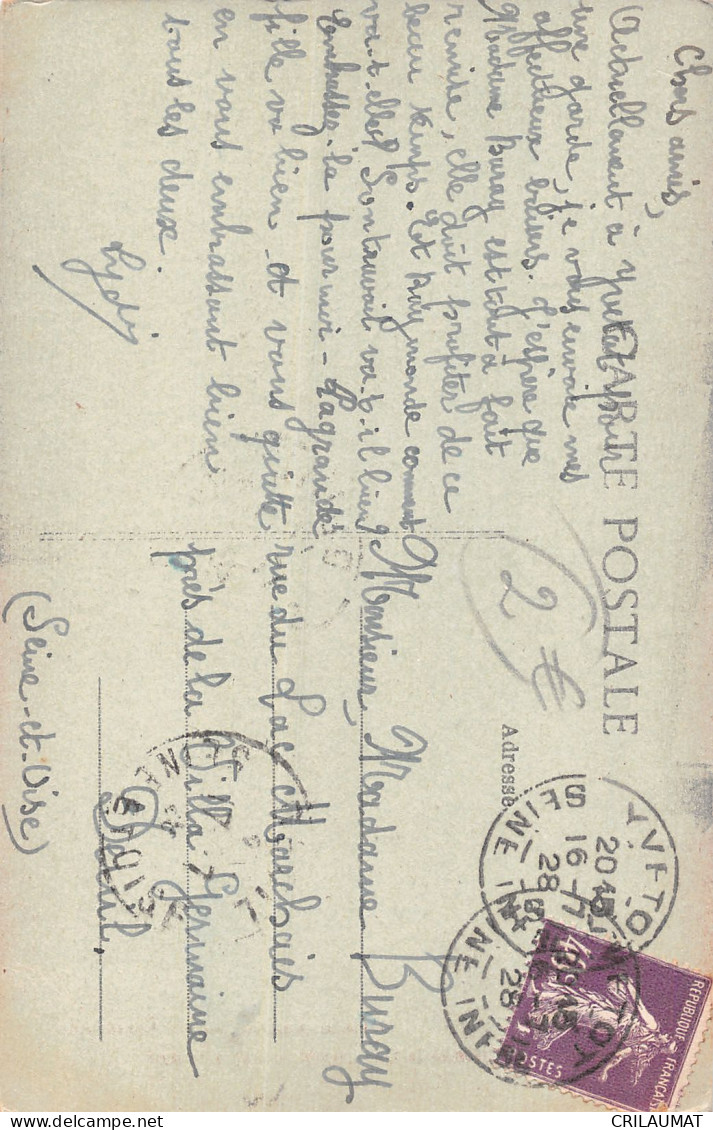 CARTE POSTALE
Chers amis,
Actuellement à Yvetot pour
une garde, je vous envoie mes
affectueux baisers. J'espère que
Madame Buray est tout à fait
remise, elle doit profiter de ce
beau temps. Et Raymonde comment
va-t-elle? va-t-il bien?
Embrassez-la pour moi - La grande
fille va bien et vous quitte
en vous embrassant bien
tous les deux.
Adresse
Monsieur Madame Buray
rue du Lac Marchais
près de la Villa Germaine
(Seine-et-Oise)
2 €
YVETOT
20 15
16 - 7
28
SEINE INF
YVETOT
28
SEINE INF
SEINE
REPUBLIQUE FRANÇAISE
POSTES
CRILAUMAT